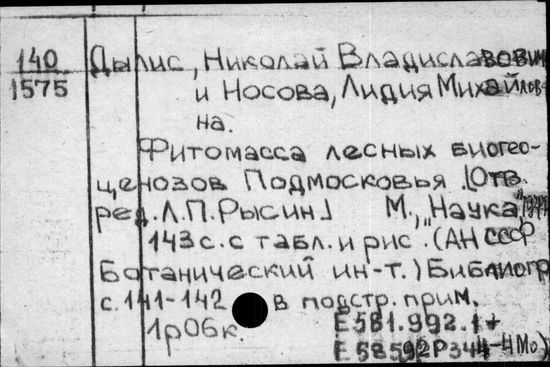 140
1575
Дылис, Николай Владиславович
и Носова, Лидия Михайлов-
на.
Фитомасса лесных биогео-
ценозов Подмосковья. [Отв.
ред. Л.П. Рысин] М., "Наука",
143 с. с табл. и рис. (АН СССР
Ботанический ин-т.) Библиогр
с. 141-142 в подстр. прим.
1р06к.
Е581.992.1+